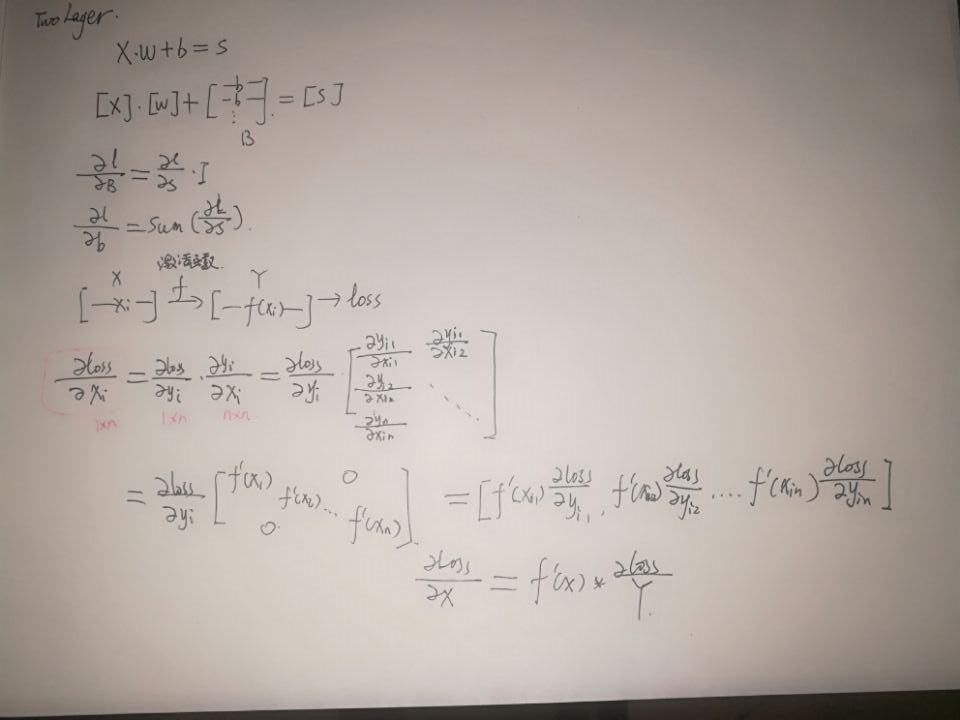 Two Layer.
X·w+b=s
[X]·[w]+[-b- -b- ⋮]=[S]
B
∂l/∂B = ∂l/∂s · I
∂l/∂b = sum(∂l/∂s).
X 激活函数. Y
[—xi—] f→ [—f(xi)—] → loss
∂loss/∂xi = ∂loss/∂yi · ∂yi/∂xi = ∂loss/∂yi · [∂yi1/∂xi1 ∂yi1/∂xi2 ∂yi2/∂xin ⋱ ∂yn/∂xin]
1×n 1×n n×n
= ∂loss/∂yi [f'(x1) 0 f'(x2)... 0 f'(xn)] = [f'(xi1) ∂loss/∂yi1, f'(xi2) ∂loss/∂yi2 .... f'(xin) ∂loss/∂yin]
∂loss/∂X = f'(x) * ∂loss/Y.